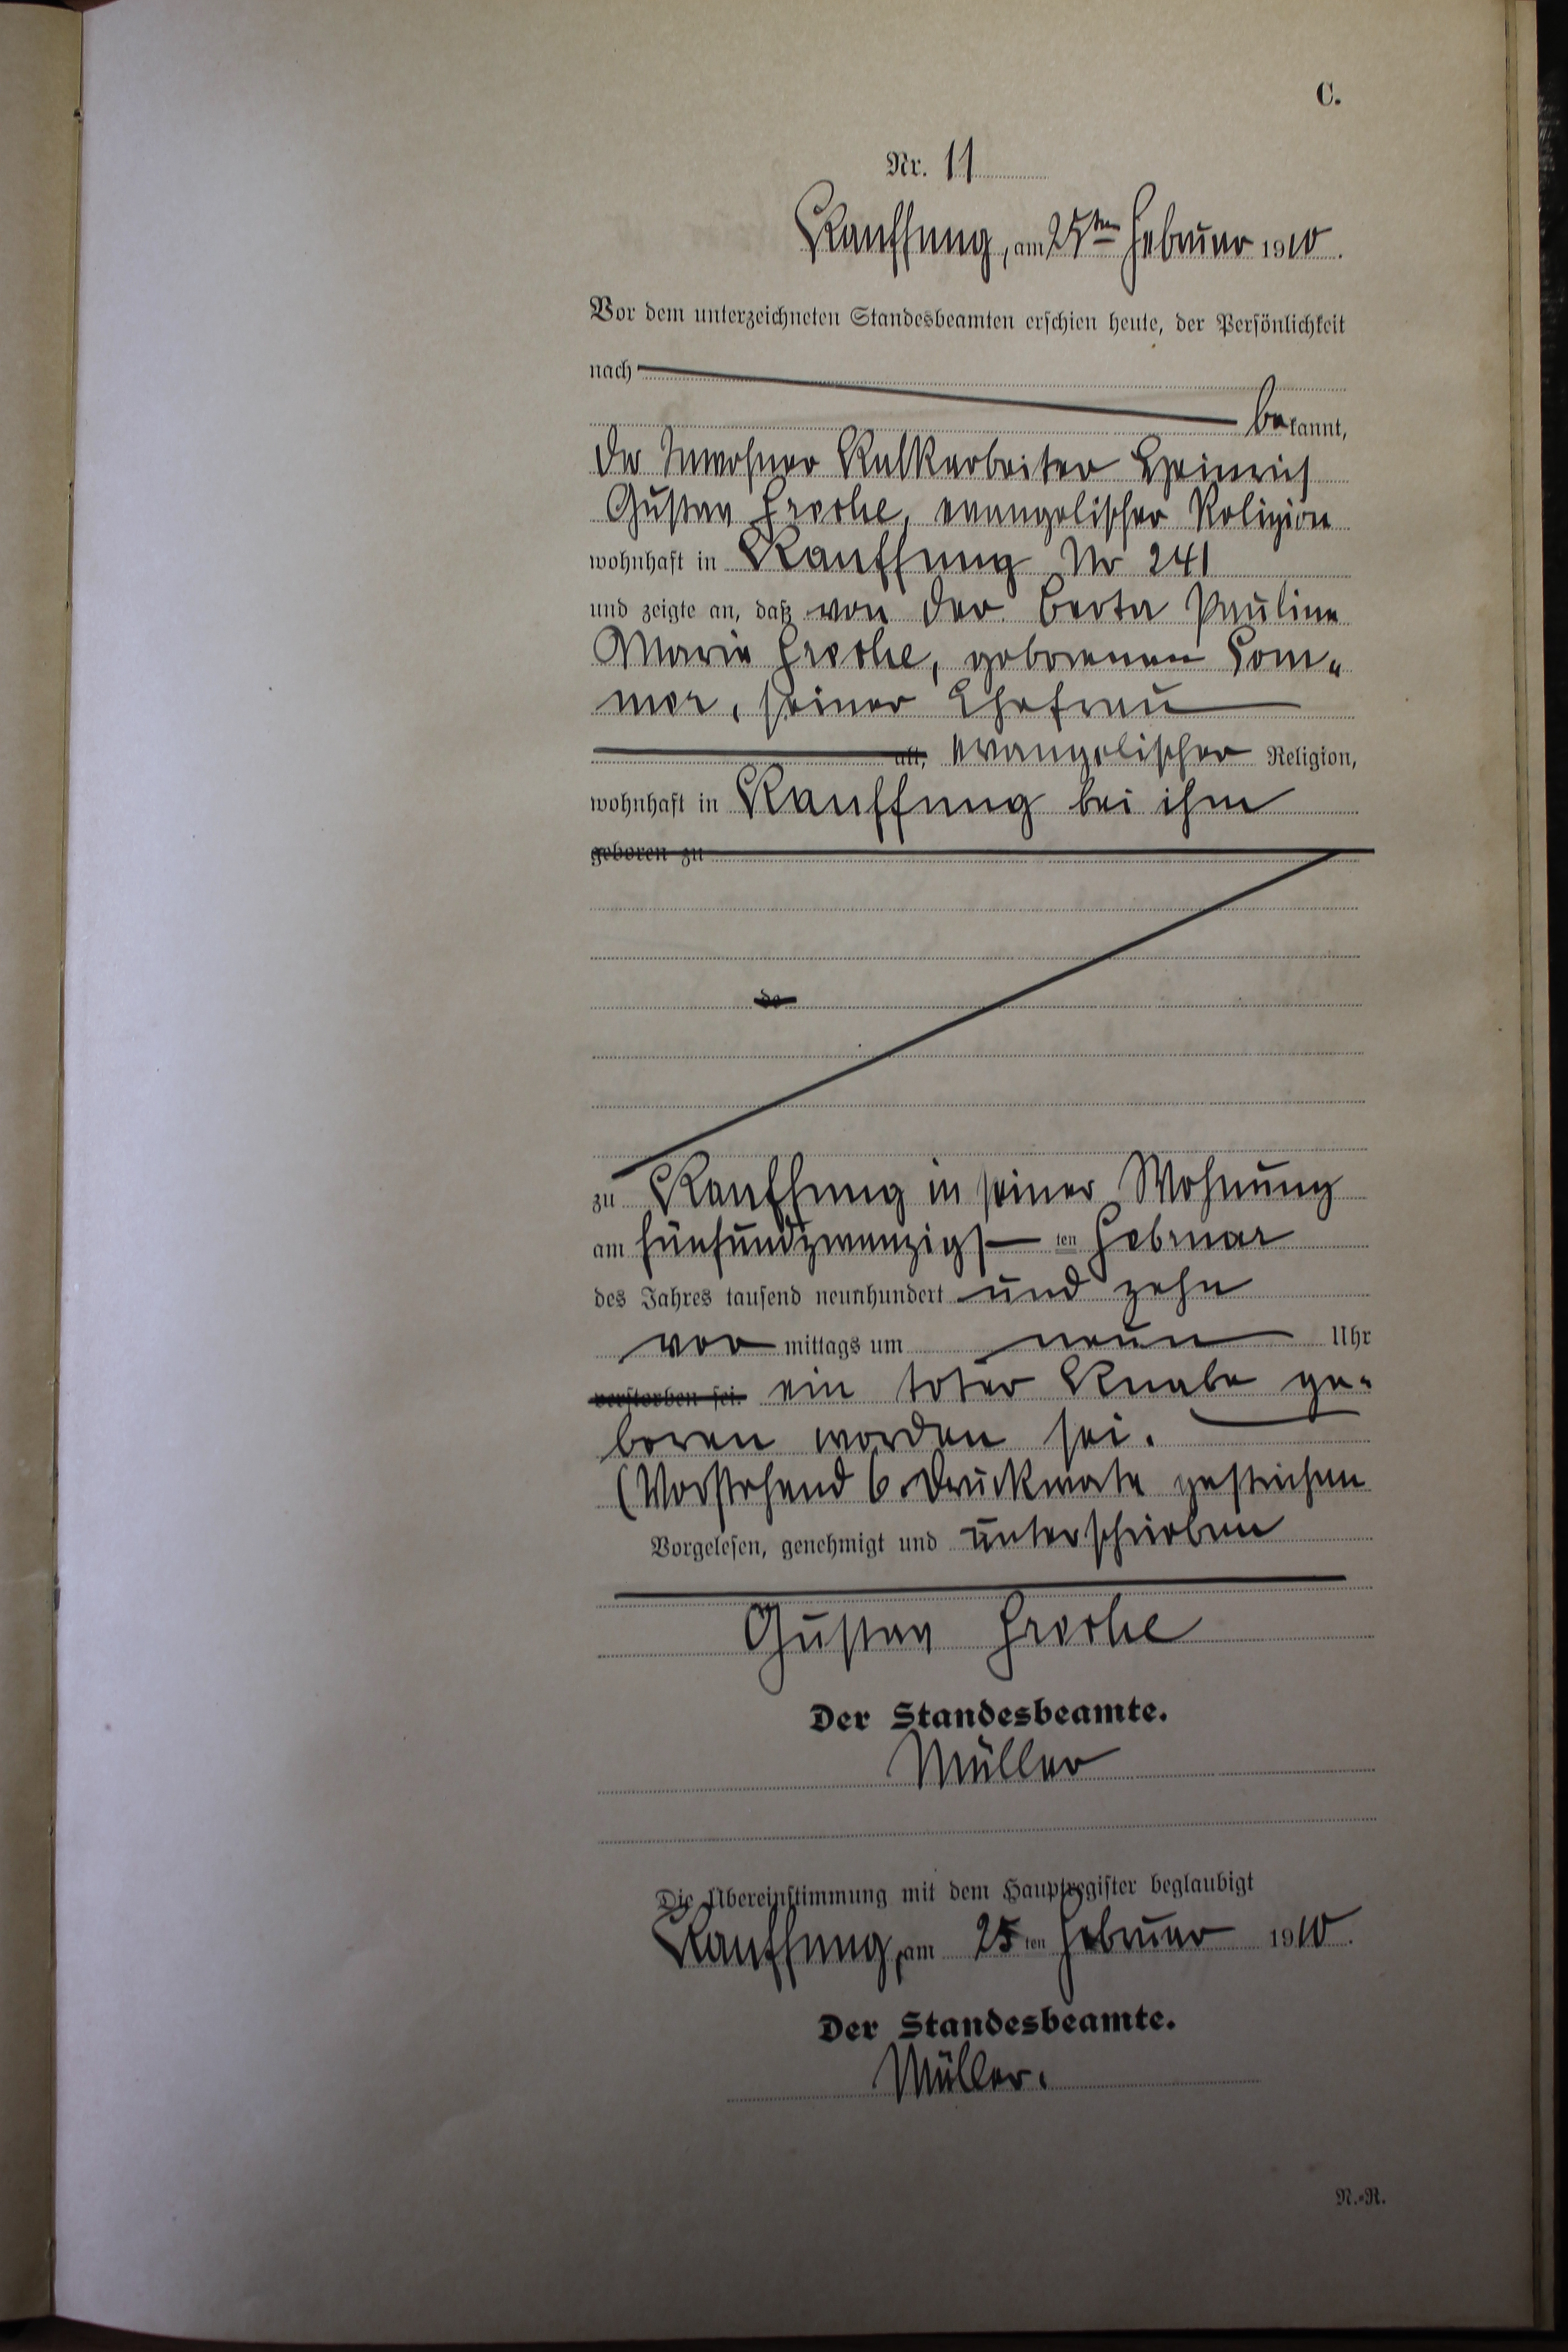 C.
Nr. 11
Kauffung, am 25ten Februar 1910.
Vor dem unterzeichneten Standesbeamten erschien heute, der Persönlichkeit
nach
bekannt,
der Inwohner Kalkarbeiter Heinrich
Gustav Freche, evangelischer Religion
wohnhaft in Kauffung Nr 241
und zeigte an, daß von der Berta Pauline
Marie Freche, geborenen Som-
mer, seiner Ehefrau
alt, evangelischer Religion,
wohnhaft in Kauffung bei ihm
geboren zu
de
zu Kauffung in seiner Wohnung
am fünfundzwanzigsten Februar
des Jahres tausend neunhundert und zehn
vormittags um neun Uhr
verstorben sei. ein toter Knabe ge-
boren worden sei.
(Vorstehend 6 Druckworte gestrichen
Vorgelesen, genehmigt und unterschrieben
Gustav Freche
Der Standesbeamte.
Müller
Die Übereinstimmung mit dem Hauptregister beglaubigt
Kauffung, am 25ten Februar 1910.
Der Standesbeamte.
Müller.
N.-R.